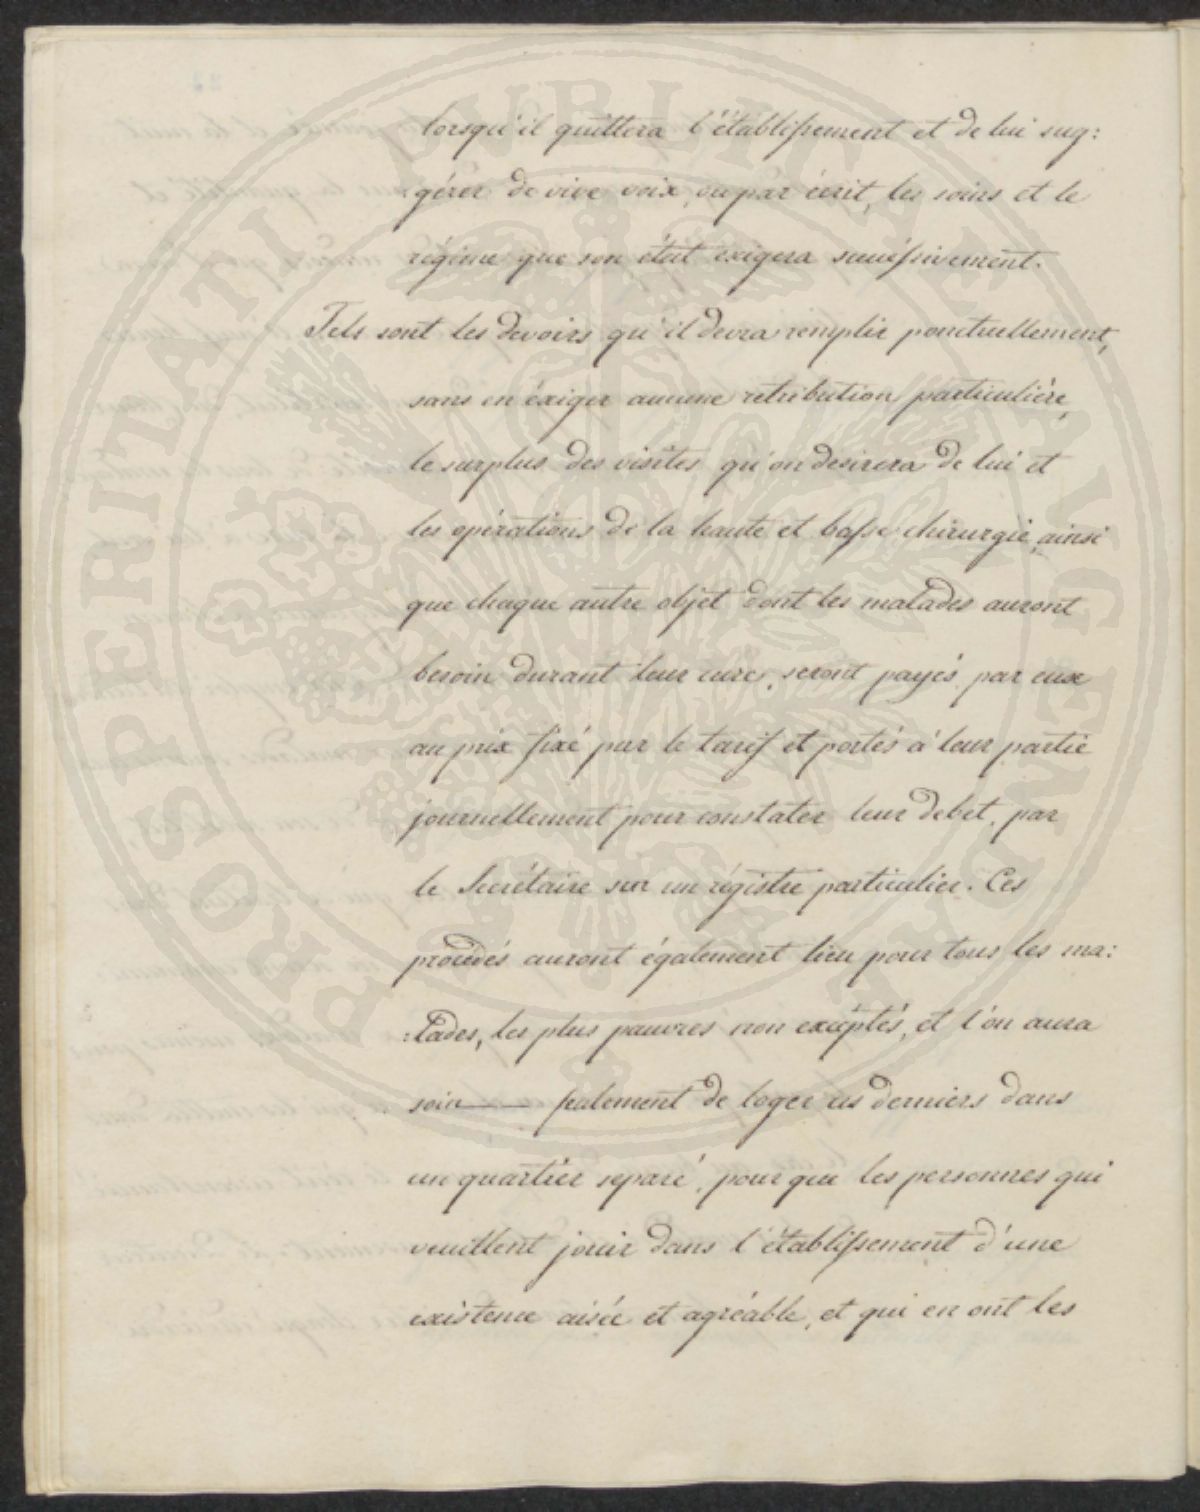 lorsqu'il quittera l'établissement et de lui sug:
gérer de vive voix, ou par écrit, les soins et le
régime que son état exigera succéssivement.
Tels sont les devoirs qu'il devra remplir ponctuellement,
sans en éxiger aucune retribution particulière,
le surplus des visites qu'on desirera de lui et
les opérations de la haute et basse chirurgie, ainsi
que chaque autre objet dont les malades auront
besoin durant leur cure, seront payés par eux
au prix fixé par le tarif et portés à leur partie
journellement pour constater leur debet, par
le Secrétaire sur un régistre particulier. Ces
procédés auront également lieu pour tous les ma:
:lades, les plus pauvres non exceptés, et l'on aura
soin — seulement de loger ces derniers dans
un quartier separé, pour que les personnes qui
veuillent jouir dans l'établissement d'une
existence aisée et agréable, et qui en ont les
PROSPERITATI PUBLICAE AUGENDAE